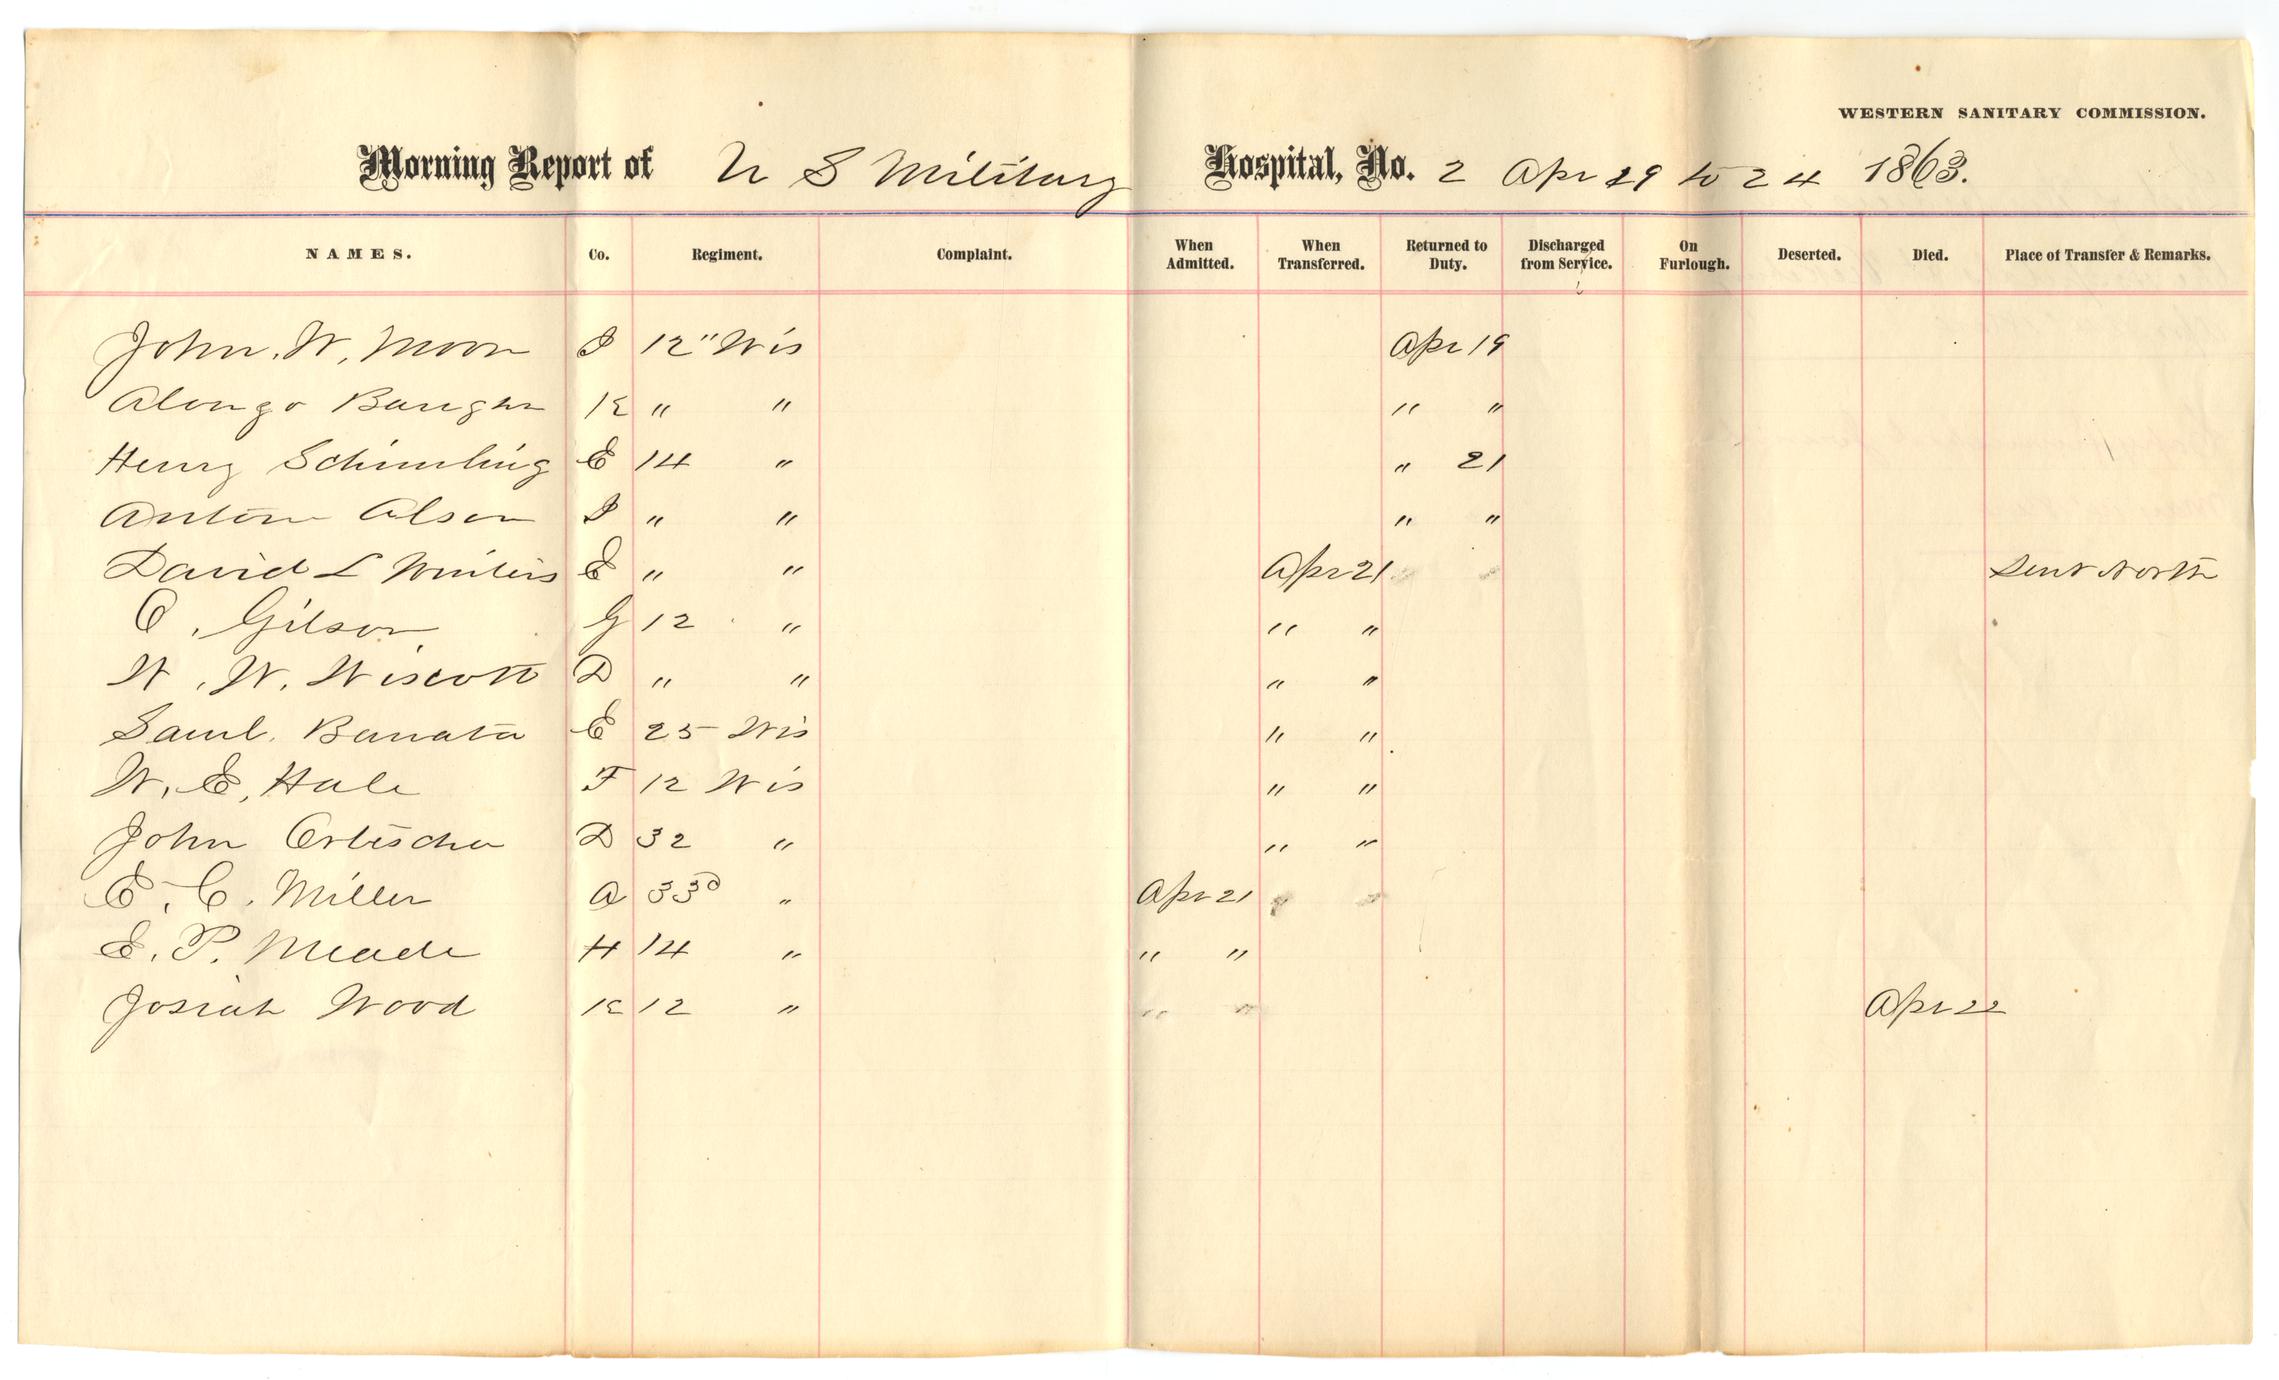 WESTERN SANITARY COMMISSION.
Morning Report of U S Military Hospital, No. 2 Apr 19 to 24 1863.
NAMES. Co. Regiment. Complaint. When Admitted. When Transferred. Returned to Duty. Discharged from Service. On Furlough. Deserted. Died. Place of Transfer & Remarks.
John. W. Moon I 12" Wis Apr 19
Alonzo K " " " "
Henry E 14 " " 21
Anton Olson I " " " "
David L Winters E " " Apr 21 Sent North
C. Gilson G 12 " " "
W. W. Wiscott D " " " "
Saml. E 25 Wis " "
W. E. Hale F 12 Wis " "
John D 32 " " "
E. C. Miller A 33d " Apr 21
E. P. Meade H 14 " " "
Josiah Wood K 12 " " " Apr 22